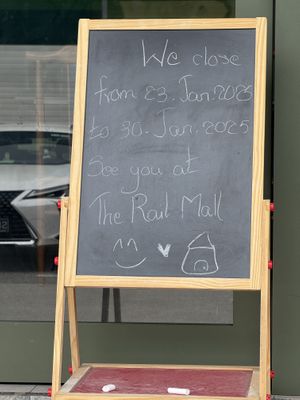 We close
from 23. Jan. 2025
to 30. Jan. 2025
See you at
The Rail Mall